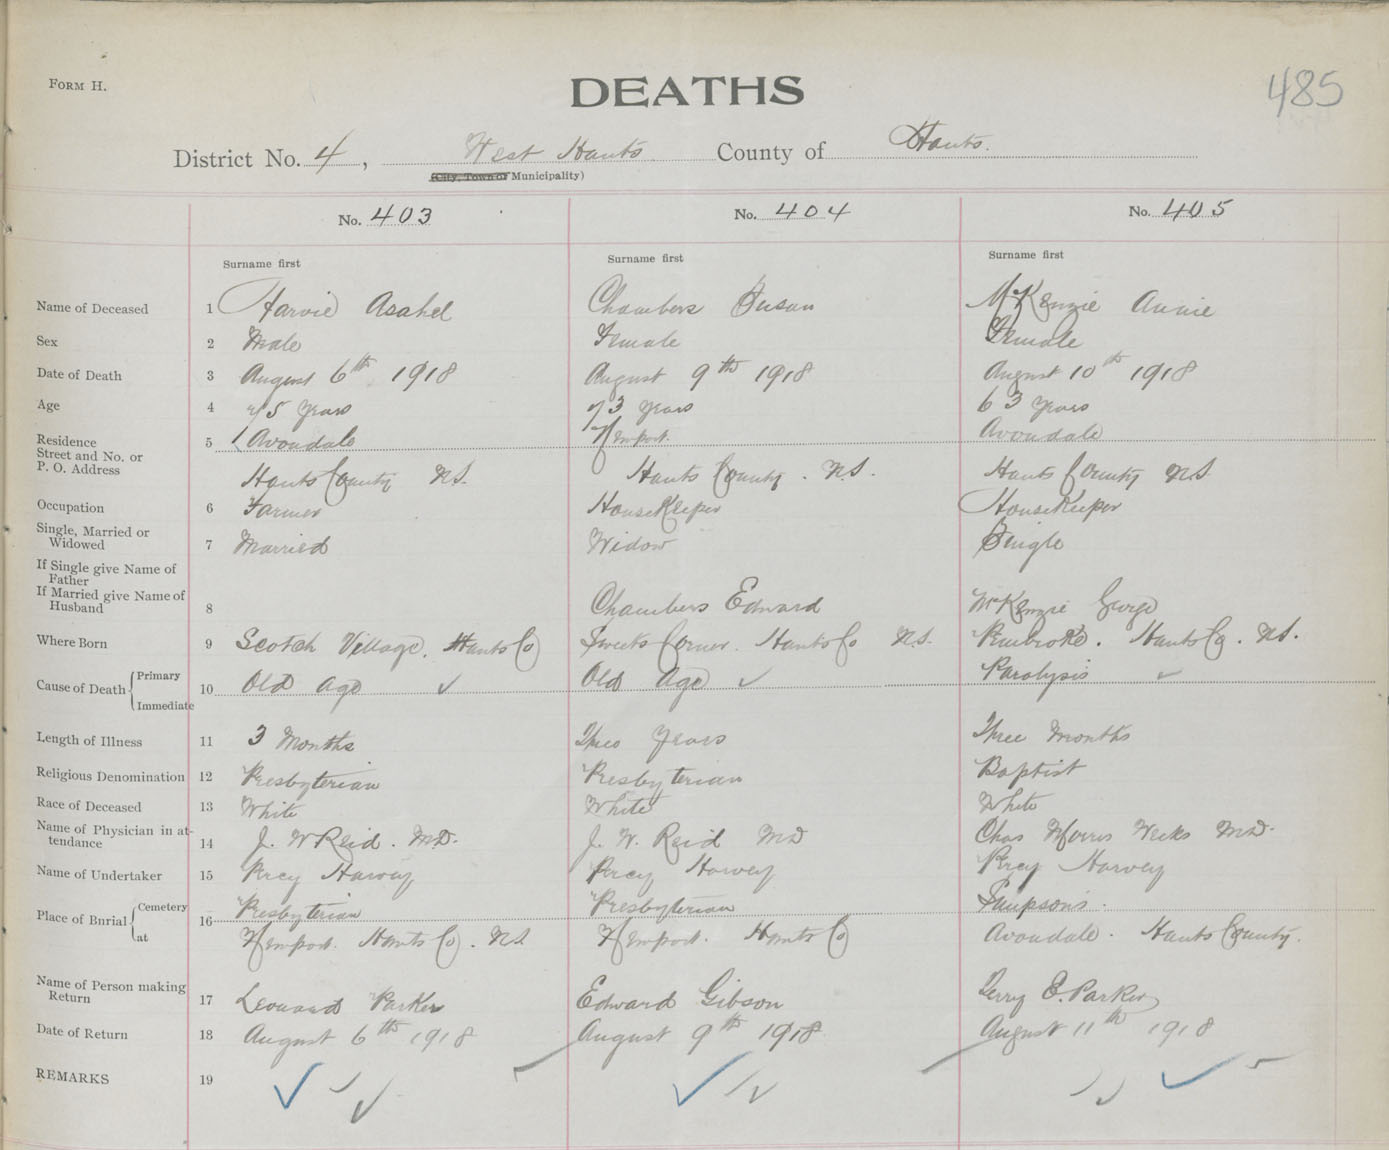 FORM H.
DEATHS
485
District No. 4, West Hants County of Hants.
(City, Town or Municipality)
No. 403 No. 404 No. 405
Surname first Surname first Surname first
Name of Deceased 1 Harvie Asahel Chambers Susan McKenzie Annie
Sex 2 Male Female Female
Date of Death 3 August 6th 1918 August 9th 1918 August 10th 1918
Age 4 75 Years 73 Years 63 Years
Residence 5 Avondale Newport. Avondale
Street and No. or
P. O. Address
Hants County N.S. Hants County. N.S. Hants County N.S
Occupation 6 Farmer HouseKeeper HouseKeeper
Single, Married or
Widowed 7 Married Widow Single
If Single give Name of
Father
If Married give Name of
Husband 8 Chambers Edward McKenzie George
Where Born 9 Scotch Village. Hants Co Sweets Corner. Hants Co N.S. Pembroke. Hants Co. N.S.
Cause of Death Primary 10 Old Age Old Age Paralysis
Immediate
Length of Illness 11 3 Months Three Years Three Months
Religious Denomination 12 Presbyterian Presbyterian Baptist
Race of Deceased 13 White White White
Name of Physician in at-
tendance 14 J. W Reid. M.D. J. W. Reid M.D Chas Morris Weeks M.D.
Name of Undertaker 15 Percy Harvey Percy Harvey Percy Harvey
Place of Bnrial Cemetery 16 Presbyterian Presbyterian Simpsons.
at Newport. Hants Co. N.S. Newport. Hants Co Avondale. Hants County.
Name of Person making
Return 17 Leonard Parker Edward Gibson E. Parker
Date of Return 18 August 6th 1918 August 9th 1918 August 11th 1918
REMARKS 19